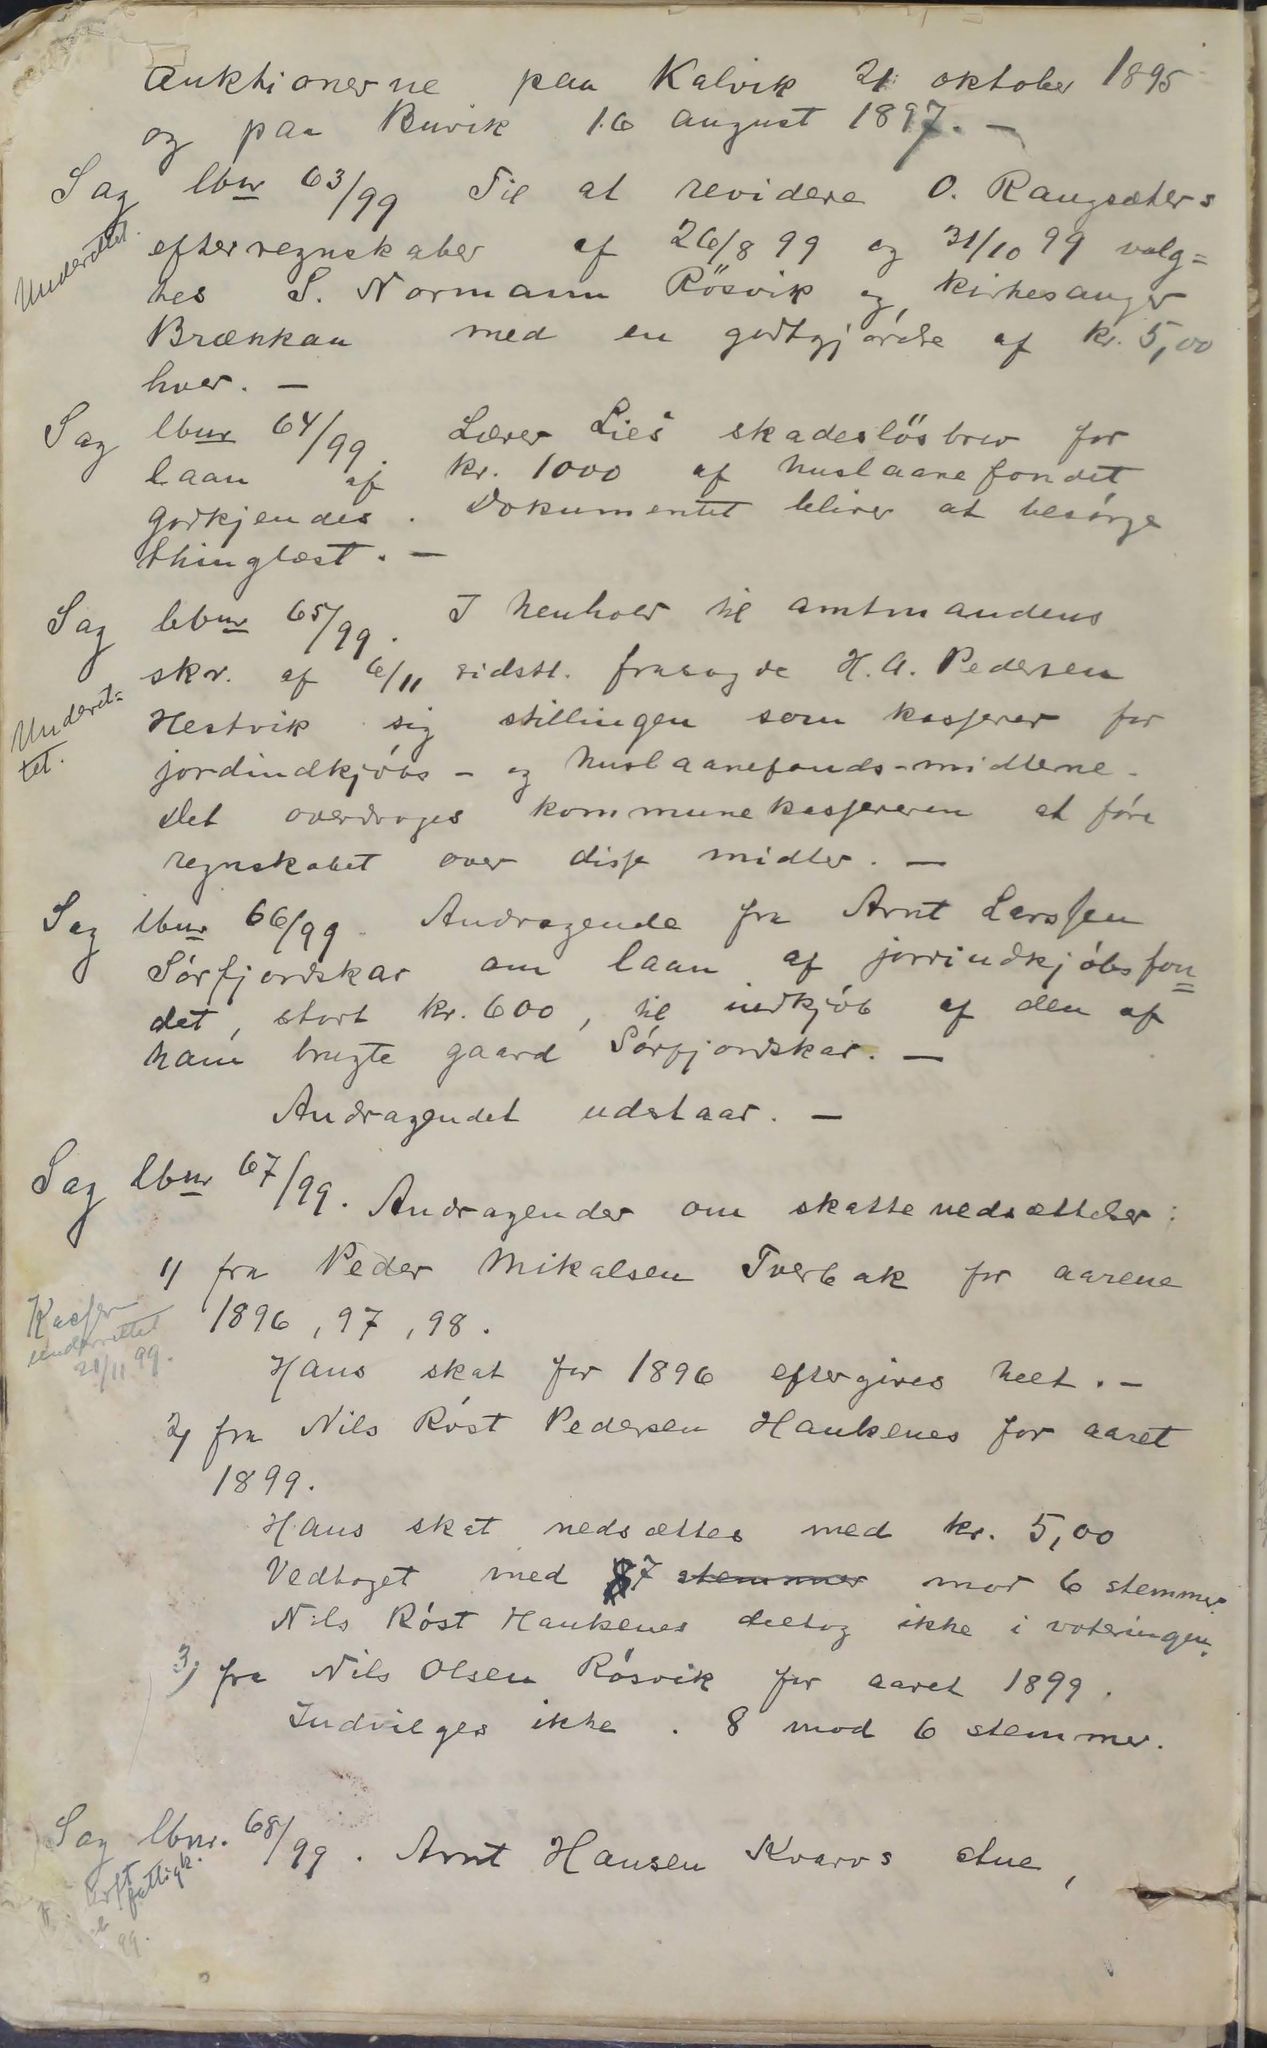 Auktionerne paa Kalvik 21 oktober 1895
og paa Buvik 16 august 1897. —
Sag lbnr 63/99 Til at revidere O. Rangsæters
Underettet.
efterregnskaber af 26/8 99 og 31/10 99 valg=
tes S. Normann Rösvik og kirkesanger
Brænkan med en godtgjørelse af kr. 5,00
hver. —
Sag lbnr 64/99. Lærer Lies skadesløsbrev for
laan af kr. 1000 af huslaanefondet
godkjendes. Dokumentet bliver at besørge
thinglæst. —
Sag lbnr 65/99. I henhold til amtmandens
skr. af 6/11 sidstl. frasagde H. A. Pedersen
Underet=
tet.
Hestvik sig stillingen som kasserer for
jordindkjøbs- og huslaanefonds-midlerne.
Det overdrages kommunekassereren at føre
regnskabet over disse midler. —
Sag lbnr 66/99. Andragende fra Arnt Larssen
Sørfjordskar om laan af jordindkjøbsfon=
det, stort kr. 600, til indkjøb af den af
ham brugte gaard Sørfjordskar. —
Andragendet udstaar. —
Sag lbnr 67/99. Andragender om skattenedsættelser:
1) fra Peder Mikalsen Tverbak for aarene
1896, 97, 98.
Kasser
underrettet
21/11 99.
Hans skat for 1896 eftergives helt. —
2) fra Nils Røst Pedersen Haukenes for aaret
1899.
Hans skat nedsættes med kr. 5,00
Vedtaget med 7 stemmer mod 6 stemmer.
Nils Røst Haukenes deltog ikke i voteringen.
3) fra Nils Olsen Røsvik for aaret 1899.
Indvilges ikke. 8 mod 6 stemmer.
Sag lbnr. 68/99. Arnt Hansen Kvarvs stue,
fattigk.
99.